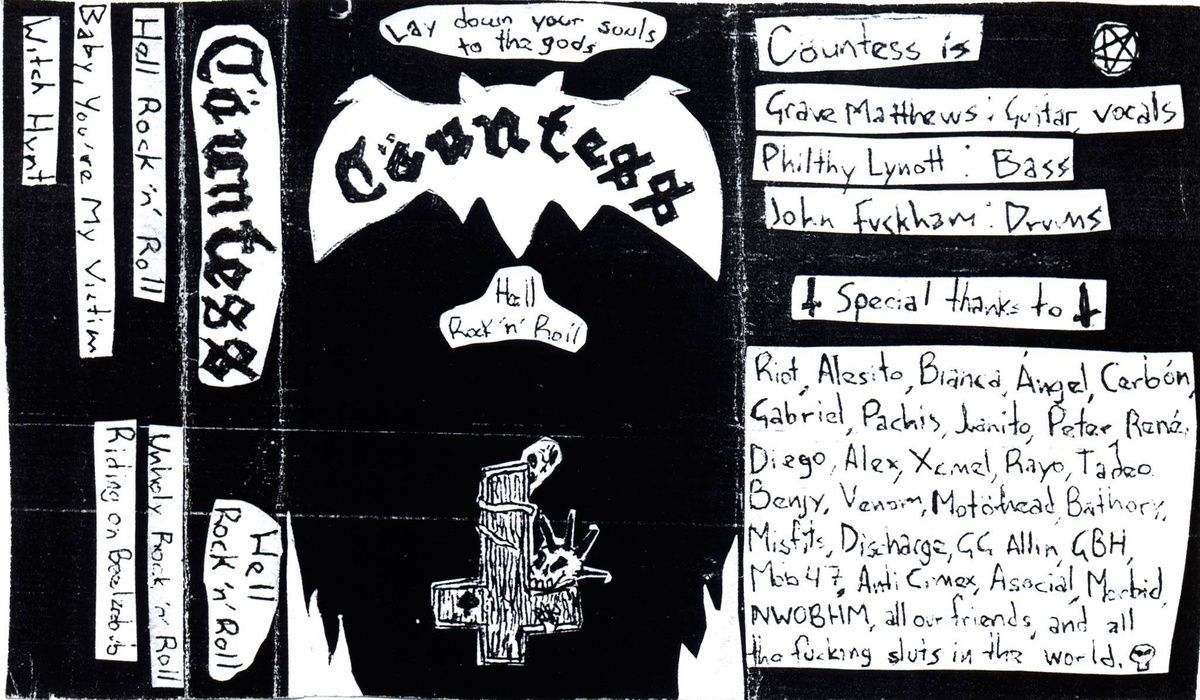 Hell Rock 'n' Roll
Baby, You're My Victim
Witch Hvnt
Unholy Rock 'n' Roll
Riding on Beelzebub
Countess
Hell
Rock 'n' Roll
Lay down your souls
to the gods
Countess
Hell
Rock 'n' Roll
Countess is
Grave Matthews: Guitar, vocals
Philthy Lynott: Bass
John Fuckham: Drums
Special thanks to
Riot, Alesito, Bianca, Ángel, Carbón,
Gabriel, Pachis, Juanito, Peter, René,
Diego, Alex, Xemel, Rayo, Tadeo
Benjy, Venom, Motörhead, Bathory,
Misfits, Discharge, GG Allin, GBH,
Mob 47, Anti Cimex, Asocial, Morbid,
NWOBHM, all our friends, and all
the fucking sluts in the world.